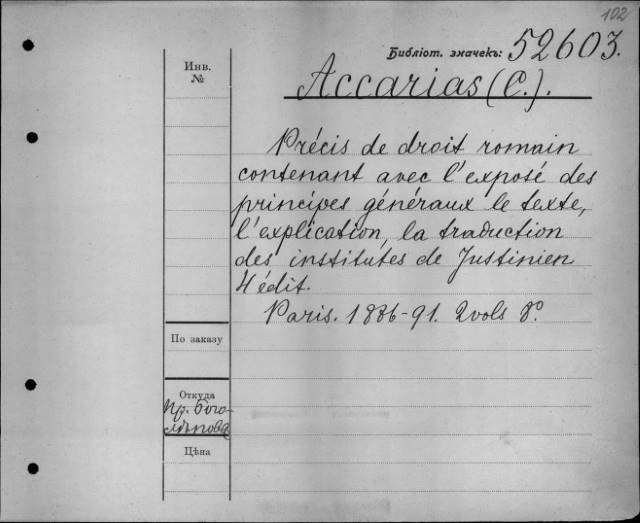 102
Библіот. значекъ: 52603.
Инв.
№
Accarias (C.).
Précis de droit romain
contenant avec l'exposé des
principes généraux le texte,
l'explication, la traduction
des institutes de Justinien
4 édit.
Paris. 1886-91. 2 vols 8°.
По заказу
Откуда
Пр. Бого-
лѣпова
Цѣна